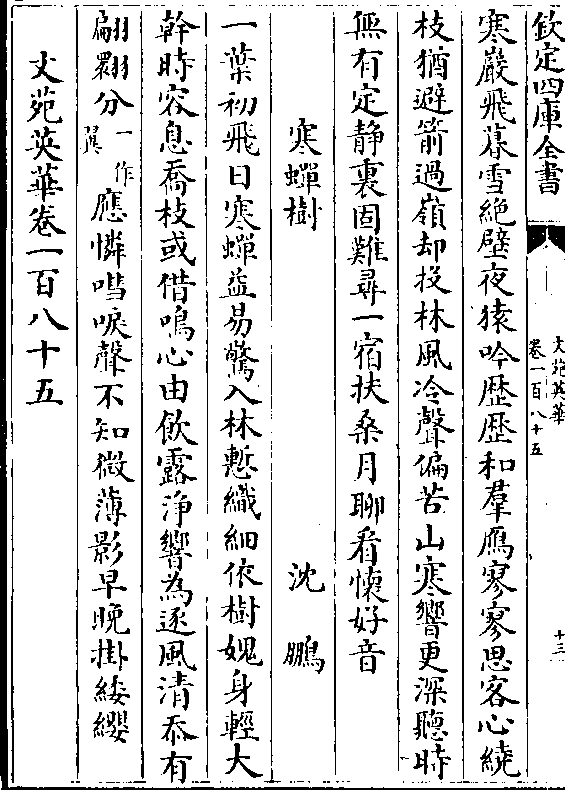 欽定四庫全書
文苑英華
卷一百八十五
十三
寒巖飛暮雪絶壁夜猿吟歴歴和羣鴈寥寥思客心繞
枝猶避箭過嶺却投林風冷聲偏苦山寒響更深聽時
無有定静裏固難尋一宿扶桑月聊看懷好音
寒蟬樹 沈鵬
一葉初飛日寒蟬益易驚入林慙纖細依樹媿身輕大
幹時容息喬枝或借鳴心由飲露浄響為逐風清忝有
翩翾分一作翼應憐嘒唳聲不知微薄影早晚掛緌纓
文苑英華卷一百八十五